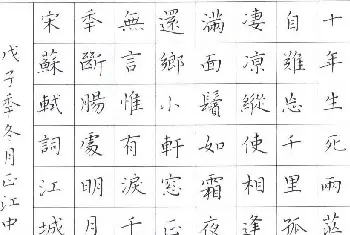 十年生死兩茫
自難忘千里孤
淒涼縱使相逢
滿面鬢如霜夜
還鄉小軒窓正
無言惟有淚千
秊斷腸處明月
宋蘇軾詞江城
戊子秊冬月正江中